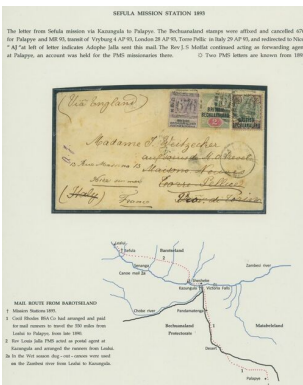 SEFULA MISSION STATION 1893
The letter from Sefula mission via Kazungula to Palapye. The Bechuanaland stamps were affixed and cancelled 678
for Palapye and MR 93, transit of Vryburg 4 AP 93, London 28 AP 93, Torre Pellic in Italy 29 AP 93, and redirected to Nice
" AJ "at left of letter indicates Adophe Jalla sent this mail. The Rev J. S Moffat continued acting as forwarding agent
at Palapye, an account was held for the PMS missionaries there. Two PMS letters are known from 189
(Via England)
Madame J. Weitzecker
13 Rue
Nice
(Italy)
France
Lealui
Sefula
Barotseland
Zambesi river
Senanga
Canoe mail 2a
Sesheke
Kazungula
Victoria Falls
Chobe river
Pandamatenga
Bechuanaland
Protectorate
Matabeleland
Palapye
MAIL ROUTE FROM BAROTSELAND
1 Mission Stations 1893.
1 Cecil Rhodes BSA Co had arranged and paid
for mail runners to travel the 550 miles from
Lealui to Palapye, from late 1890.
2 Rev Louis Jalla PMS acted as postal agent at
Kazungula and arranged the runners from Lealui.
2a In the Wet season dug - out - canoes were used
on the Zambesi river from Lealui to Kazungula.